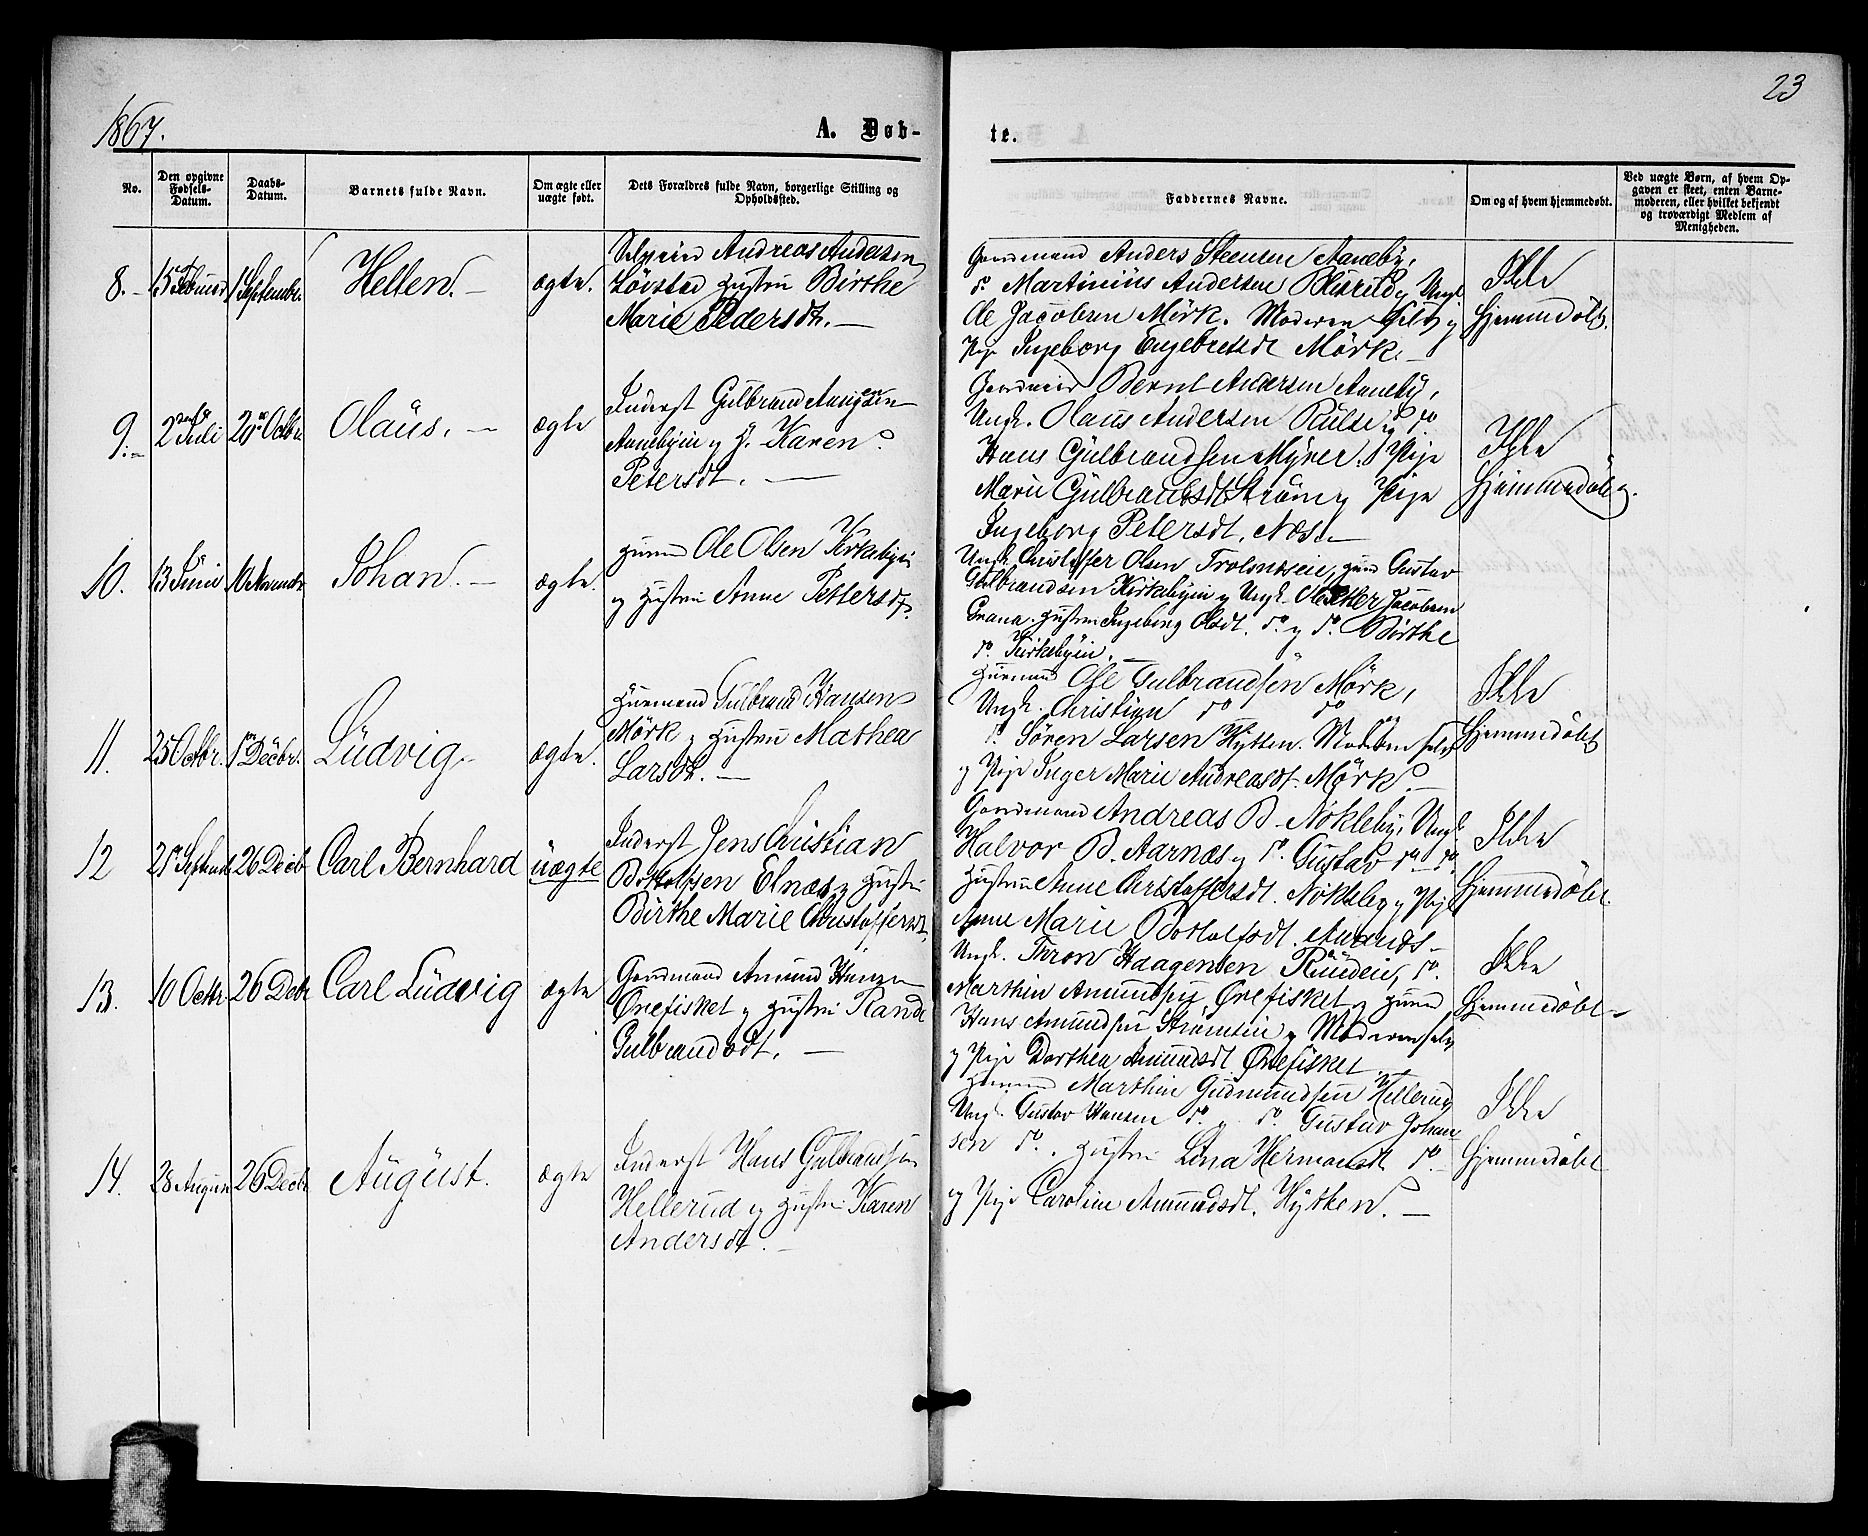 23
1867.
A. Døb-
te.
No.
Den opgivne
Fødsels-
Datum.
Daabs-
Datum.
Barnets fulde Navn.
Om ægte eller
uægte født.
Dets Forældres fulde Navn, borgerlige Stilling og
Opholdssted.
Faddernes Navne.
Om og af hvem hjemmedøbt.
Ved uægte Børn, af hvem Op-
gaven er skeet, enten Barne-
moderen, eller hvilket bekjendt
og troværdigt Medlem af
Menigheden.
8. 15 Februar 1 September Hellen. ægte.
Selveier Andreas Andersen
Løvstad Hustru Birthe
Marie Pedersdt.
Gaardmand Anders Steensen Aaneby,
do Martinius Andersen Ungk.
Ole Jacobsen Mörk. Moderen selv og
Pige Ingeborg Engebretsdt Mörk.
Ikke
hjemmedöbt.
9. 2 Juli 20 Octbr. Olaüs. ægte
Inderst Gulbrand
og H. Karen
Petersdt.
Bernt Andersen Aaneby,
Ungk. Olaus Andersen og do
Hans Gülbrandsen Myrer. Pige
Marie Gülbrandsdt Ström og Pige
Ingeborg Petersdt. Næs.
Ikke
hjemmedöbt.
10. 13 Juni 10 Novembr Johan. ægte.
Huusmd Ole Olsen Kirkebyei
og Hustru Anne Pettersdt.
Ungk. Christoffer Olsen Huusmd Gustav
Gulbrandsen Kirkebyein og Ungk. Ole Petter Jacobsen
Grana. Hustru Ingeborg Olsdt. do og do Birthe
do Kirkebyein.
11. 25 Octbr. 1 Decbr. Lüdvig ægte.
Huusmand Gulbrand Hansen
Mörk og Hustru Mathea
Larsdt.
Huusmand Ole Gulbrandsen Mörk,
Ungk. Christian do do
do Sören Larsen Hytten. Moderen selv
og Pige Inger Marie Andreasdt. Mörk.
Ikke
Hjemmedöbt
12 21 Septemb 26 Decb Carl Bernhard üægte
Inderst Jens Christian
Bottolfsen Elnæs og Hustru
Birthe Marie Christoffersdt.
Gaardmand Andreas B. Nökleby, Ungk.
Halvor B. Aarnæs og do Gustav do do
Hustru Anne Christoffersdt. Nökleby og Pige
Anne Marie Bottolfsdt.
Ikke
Hjemmedöbt.
13. 10 Octbr 26 Debr Carl Lüdvig ægte
Gaardmand Amund Hansen
Ørefisket og Hustru Randi
Gulbrandsdt.
Ungk. Thron Haagensen do
Marthin Amundsen Ørefisket og Huusmd
Hans Amundsen og Moderen selv
og Pige Dorthea Amundsdt Ørefisket.
Ikke
Hjemmedöbt
14. 28 August 26 Decbr August. ægte
Inderst Hans Gulbrandsen
Hellerud og Hustru Karen
Andersdt.
Huusmd Marthin Gudmundsen Hellerud,
Ungk. Gustav Hansen do og do Gustav Johan
sen do. Hustru Lina Hermansdt do
og Pige Caroline Amundsdt. Hytten.
Ikke
Hjemmedöbt